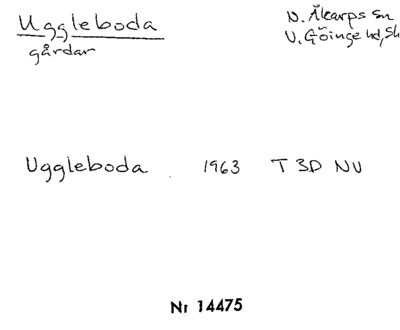 Uggleboda
gårdar
N. Åkarps Sn
V. Göinge hd, Sk
Uggleboda 1963 T 3D NV
Nr 14475